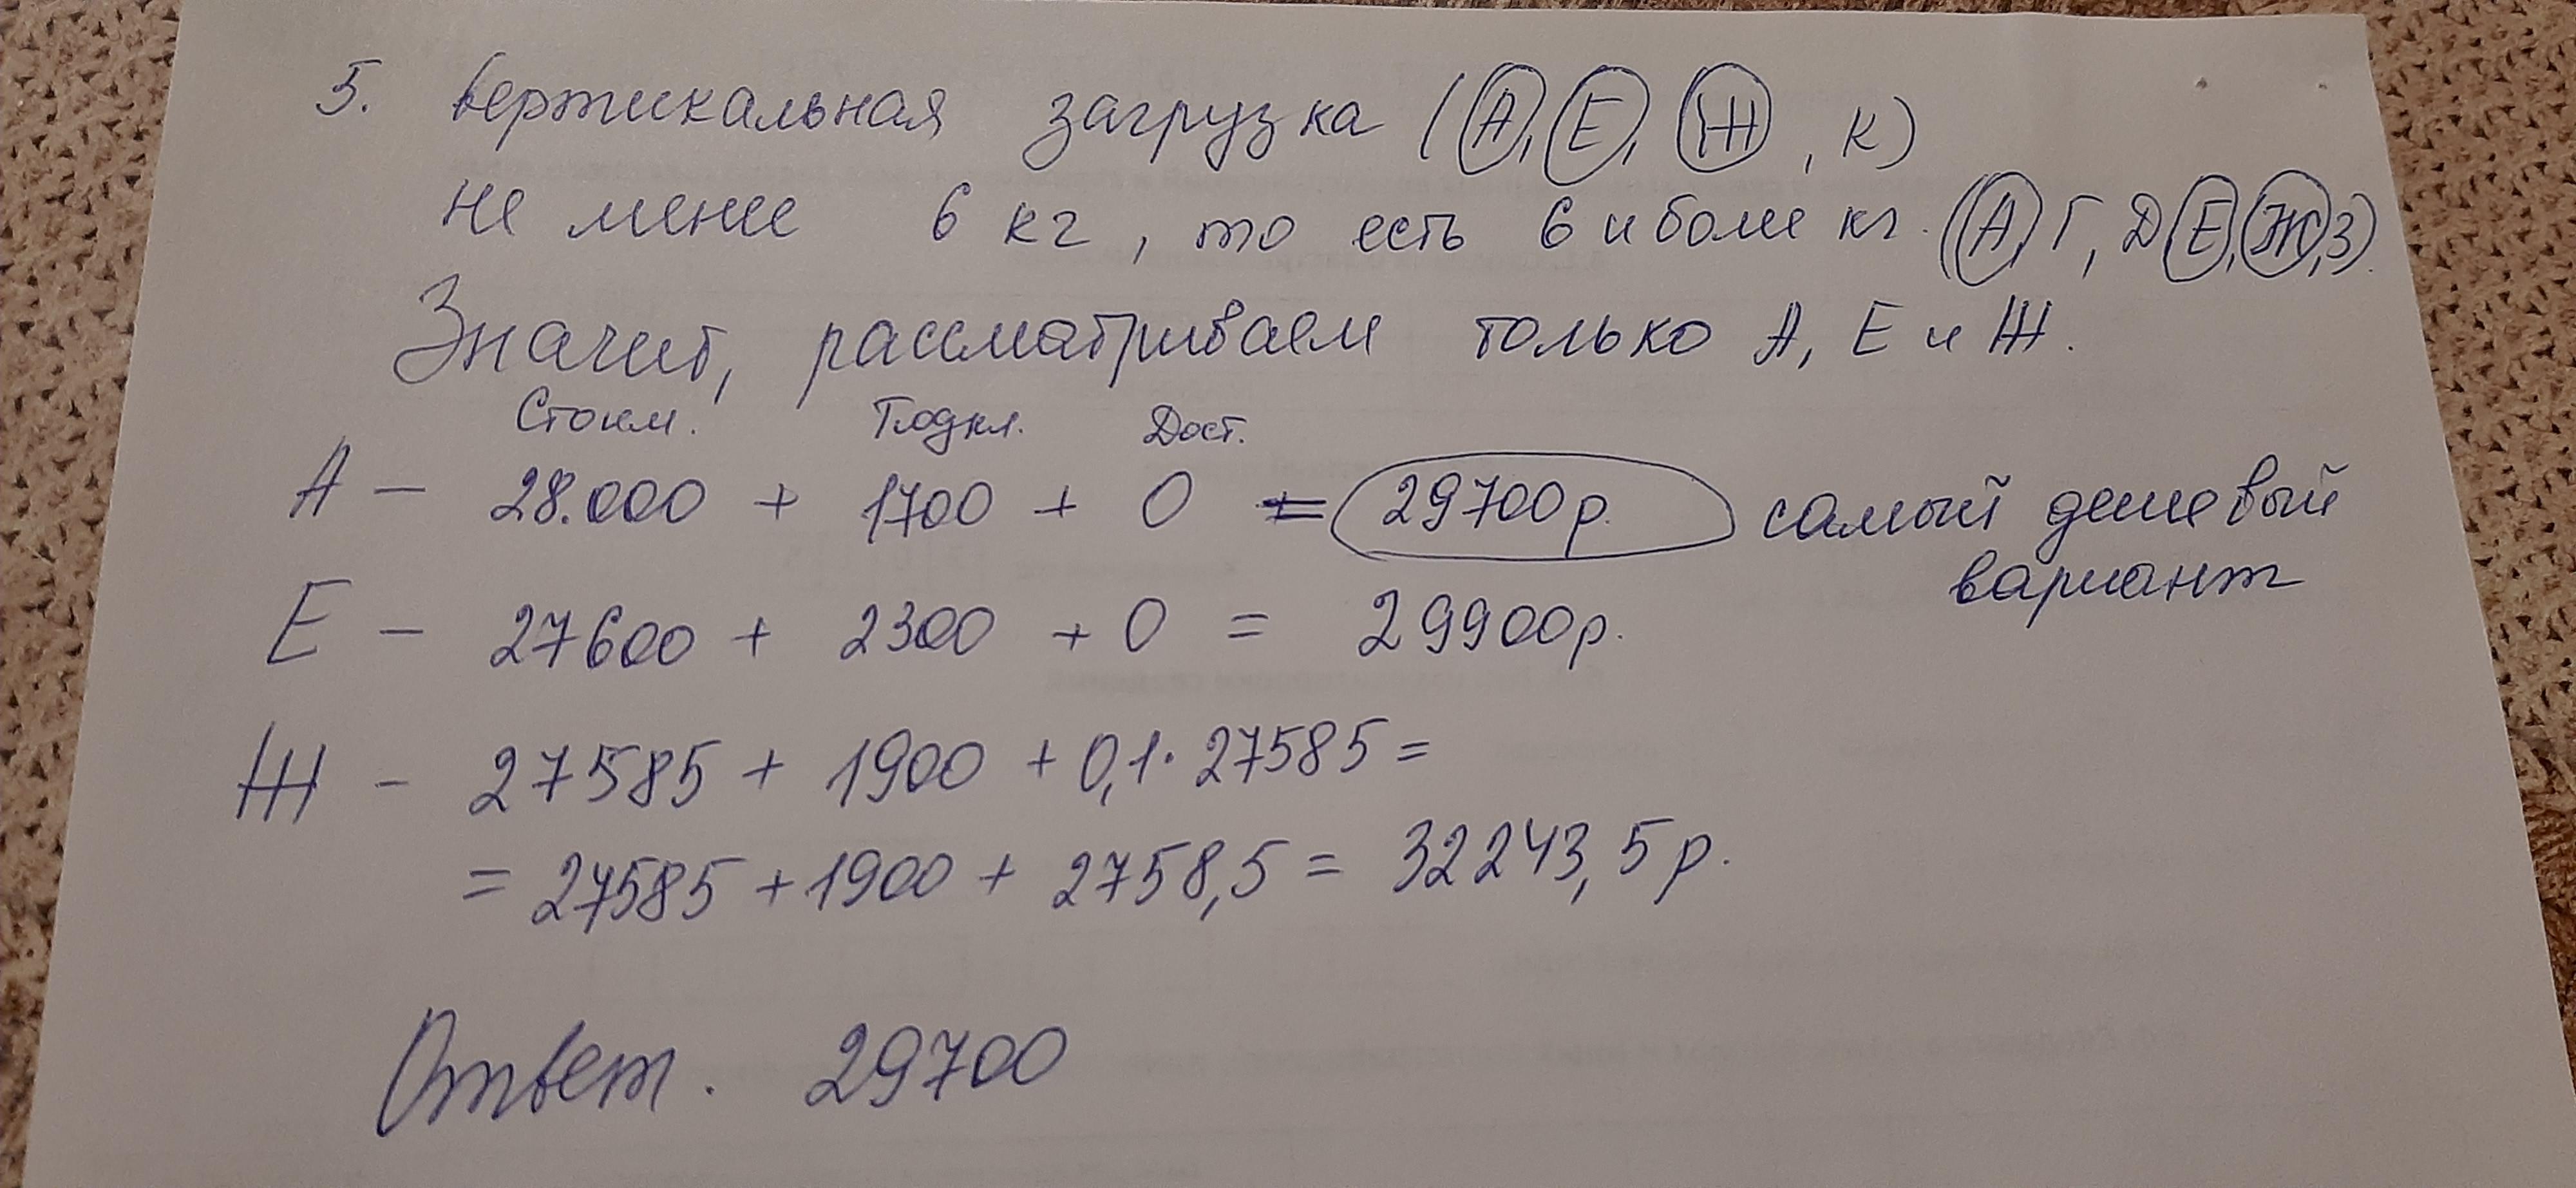 5. вертикальная загрузка (А, Е, Ж, К)
не менее 6 кг, то есть 6 и более кг. (А, Г, Д, Е, Ж, З).
Значит, рассматриваем только А, Е и Ж.
Стоим. Подкл. Дост.
А - 28.000 + 1700 + 0 = 29700р. самый дешевый
вариант
Е - 27600 + 2300 + 0 = 29900р.
Ж - 27585 + 1900 + 0,1·27585 =
= 27585 + 1900 + 2758,5 = 32243,5 р.
Ответ. 29700